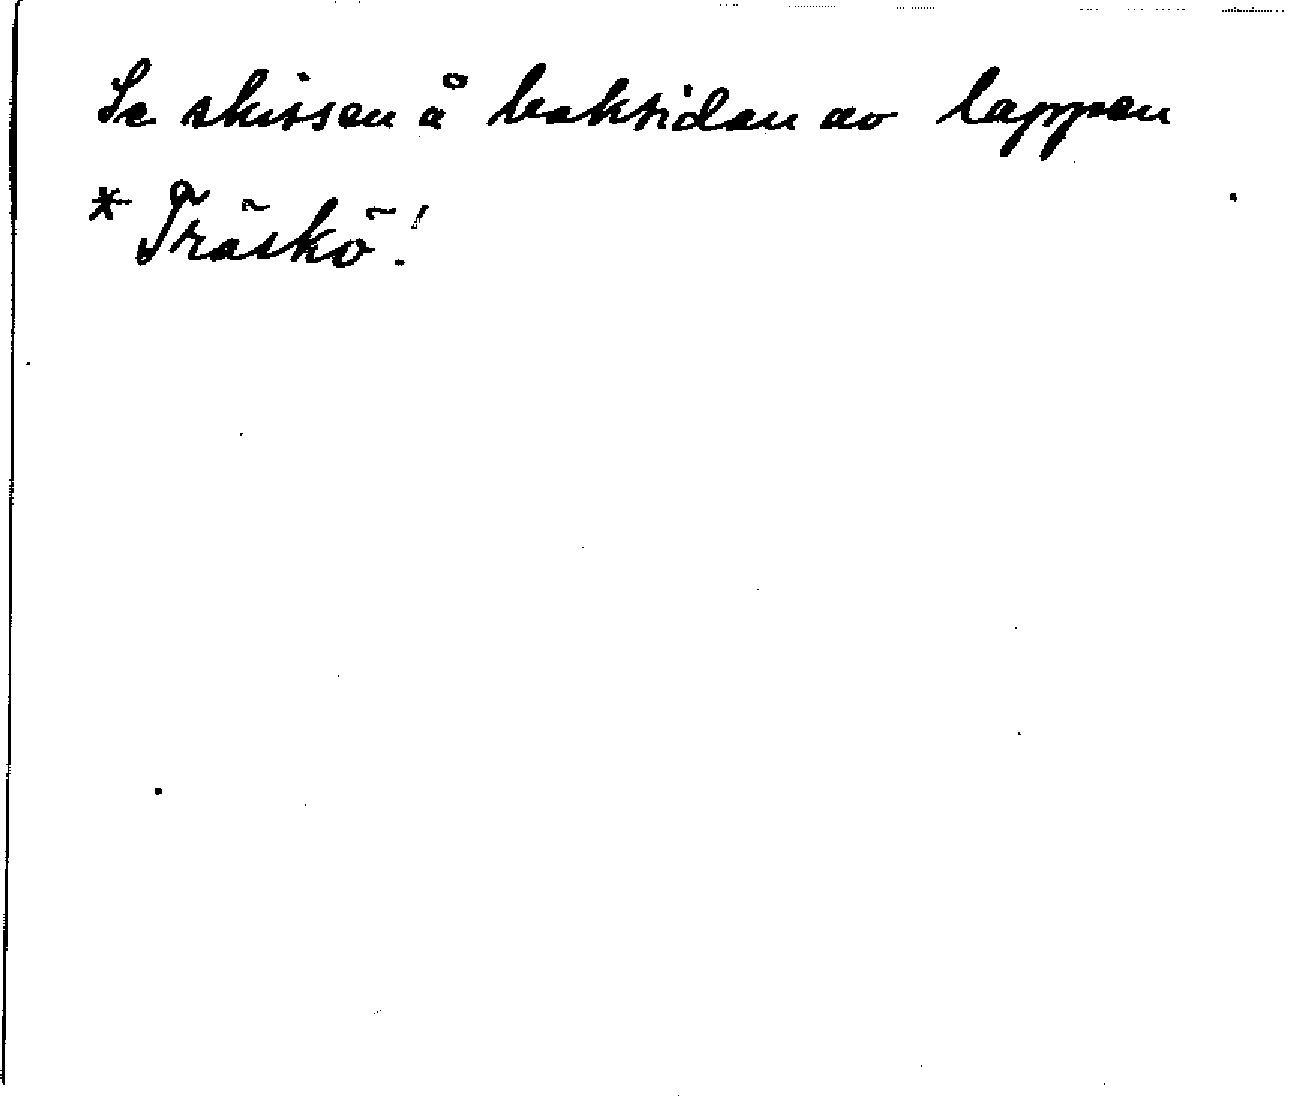 Se skissen å baksidan av lappen
* Träskö!